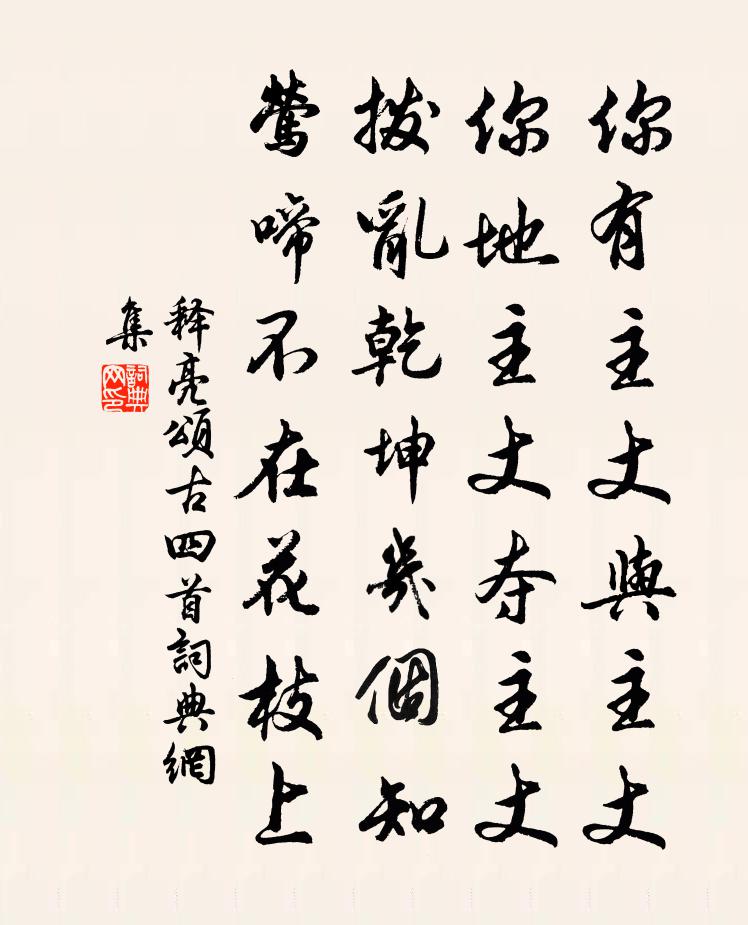 你有主丈與主丈
你地主丈夺主丈
拨亂乾坤幾個知
鶯啼不在花枝上
释亮頌古四首詞典網
集
詞典网印